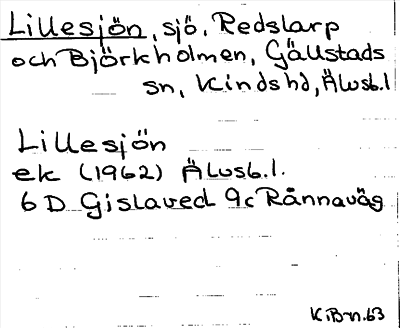 Lillesjön, sjö, Redslarp
och Björkholmen, Gällstads
sn, Kinds hd, Älvsb.l
Lillesjön
ek (1962) Älvsb.l.
6 D Gislaved 9c Rånnaväg
K.Bn.63